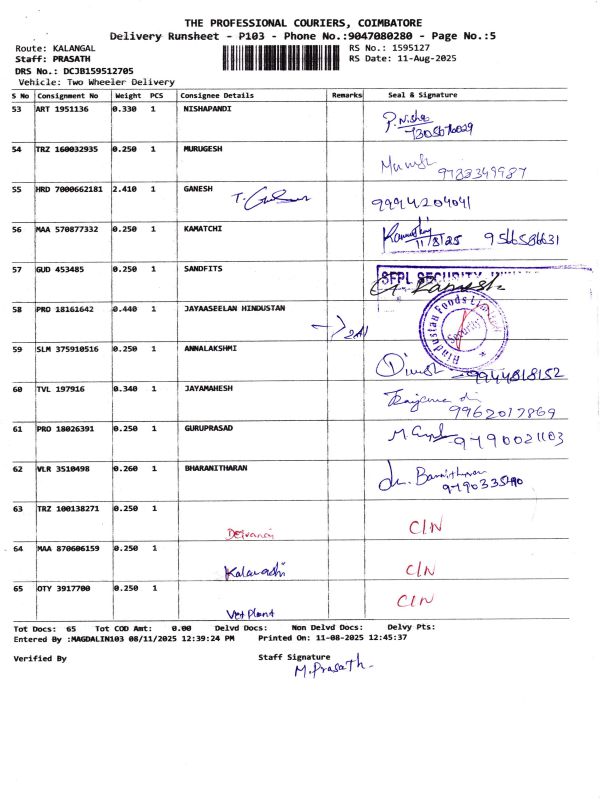 THE PROFESSIONAL COURIERS, COIMBATORE
Delivery Runsheet - P103 - Phone No.:9047080280 - Page No.:5
Route: KALANGAL RS No.: 1595127
Staff: PRASATH RS Date: 11-Aug-2025
DRS No.: DCJB159512705
Vehicle: Two Wheeler Delivery
S No Consignment No Weight PCS Consignee Details Remarks Seal & Signature
53 ART 1951136 0.330 1 NISHAPANDI
P. Nisha
54 TRZ 160032935 0.250 1 MURUGESH
9783349987
55 HRD 7000662181 2.410 1 GANESH
9994204041
56 MAA 570877332 0.250 1 KAMATCHI
11/8/25 9566586631
57 GUD 453485 0.250 1 SANDFITS
SFPL SECURITY
58 PRO 18161642 0.440 1 JAYAASEELAN HINDUSTAN
Hindustan Foods Limited
Security
59 SLM 375910516 0.250 1 ANNALAKSHMI
9944818152
60 TVL 197916 0.340 1 JAYAMAHESH
9962017869
61 PRO 18026391 0.250 1 GURUPRASAD
9790021103
62 VLR 3510498 0.260 1 BHARANITHARAN
63 TRZ 100138271 0.250 1
C/N
64 MAA 870606159 0.250 1
C/N
65 OTY 3917700 0.250 1
C/N
Vet Plant
Tot Docs: 65 Tot COD Amt: 0.00 Delvd Docs: Non Delvd Docs: Delvy Pts:
Entered By :MAGDALIN103 08/11/2025 12:39:24 PM Printed On: 11-08-2025 12:45:37
Verified By Staff Signature
M. Prasath